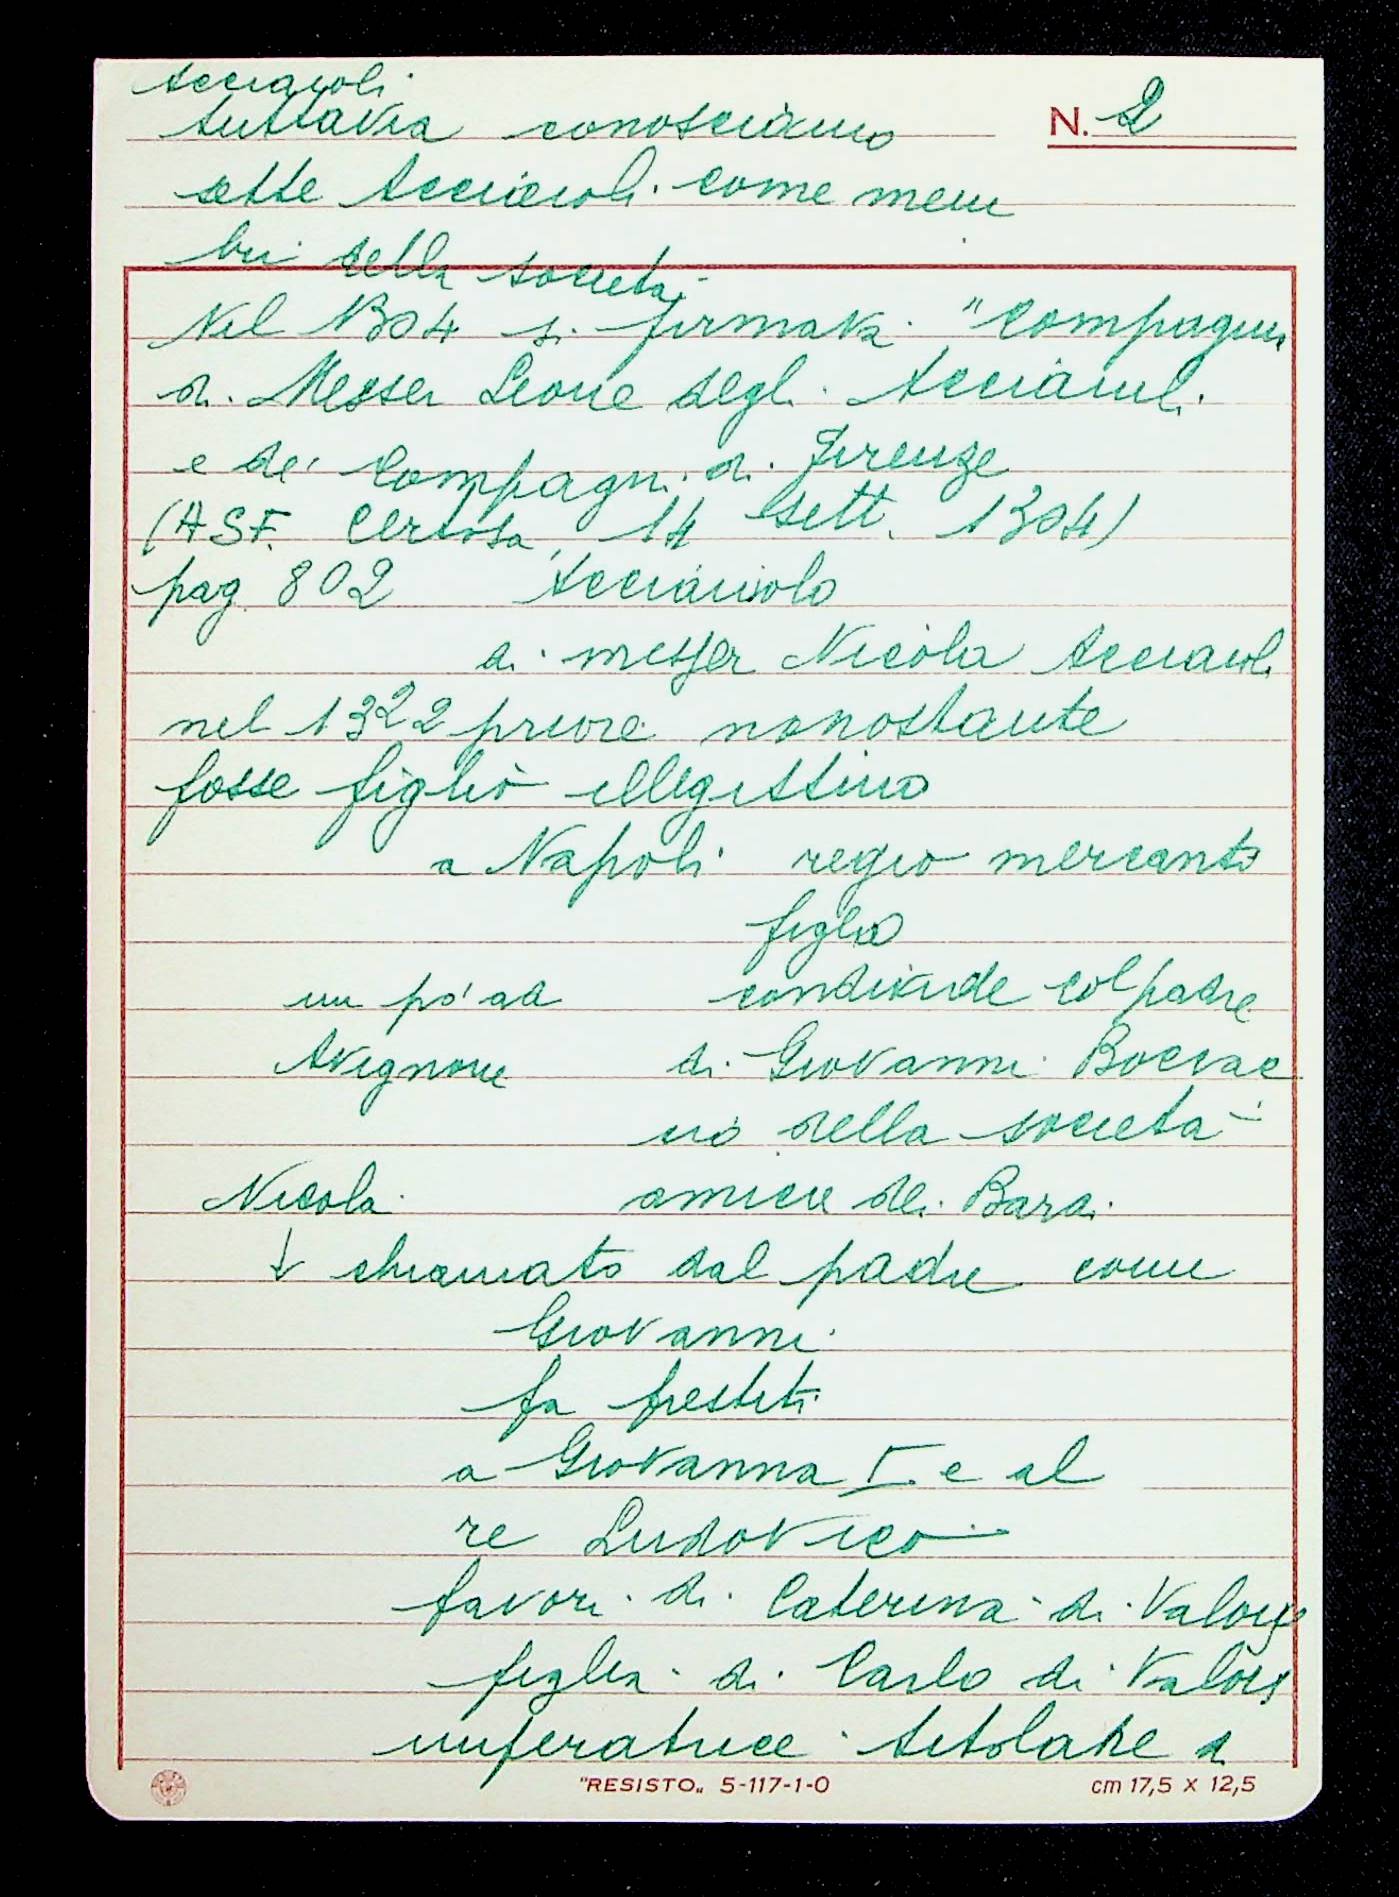 Acciaioli
tuttavia conosciamo
N. 2
sette Acciaioli come mem
bri della società
Nel 1304 si firmava "Compagnia
di Messer Leone degli Acciaiuoli
e de' Compagni di Firenze
(ASF. Certosa, 14 sett. 1304)
pag. 802 Acciaiuolo
di messer Nicola Acciaioli
nel 1322 priore nonostante
fosse figlio illegittimo
a Napoli regio mercante
figlio
un po' ad condivide col padre
Avignone di Giovanni Boccac
cio della società
Nicola amico dei Bardi
↓ chiamato dal padre come
Giovanni
fa prestiti
a Giovanna I e al
re Ludovico
favori di Caterina di Valois
figlia di Carlo di Valois
imperatrice titolare d
"RESISTO" 5-117-1-0 cm 17,5 x 12,5